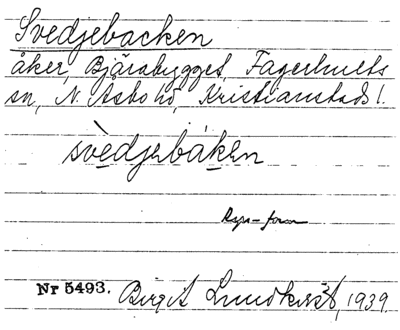 Svedjebacken
åker, Bjärabygget, Fagerhults
sn, N. Åsbo hd, Kristianstads l.
svèdjebáken
Rys-form
Nr 5493. Birgit Lundkvist, 1939.